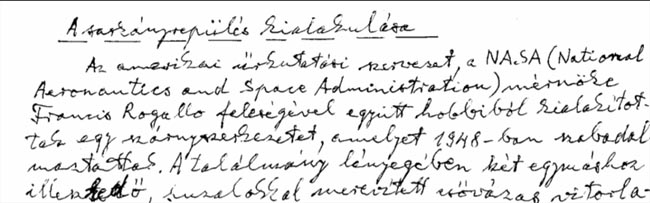 A sárkányrepülés kialakulása
Az amerikai űrkutatási szervezet, a NASA (National
Aeronautics and Space Administration) mérnöke
Francis Rogallo feleségével együtt hobbiból kialakítot-
tak egy szárnyszerkezetet, amelyet 1948-ban szabadal-
maztattak. A találmány lényegében két egymáshoz
illeszkedő, huzalokkal merevített csővázas vitorla-